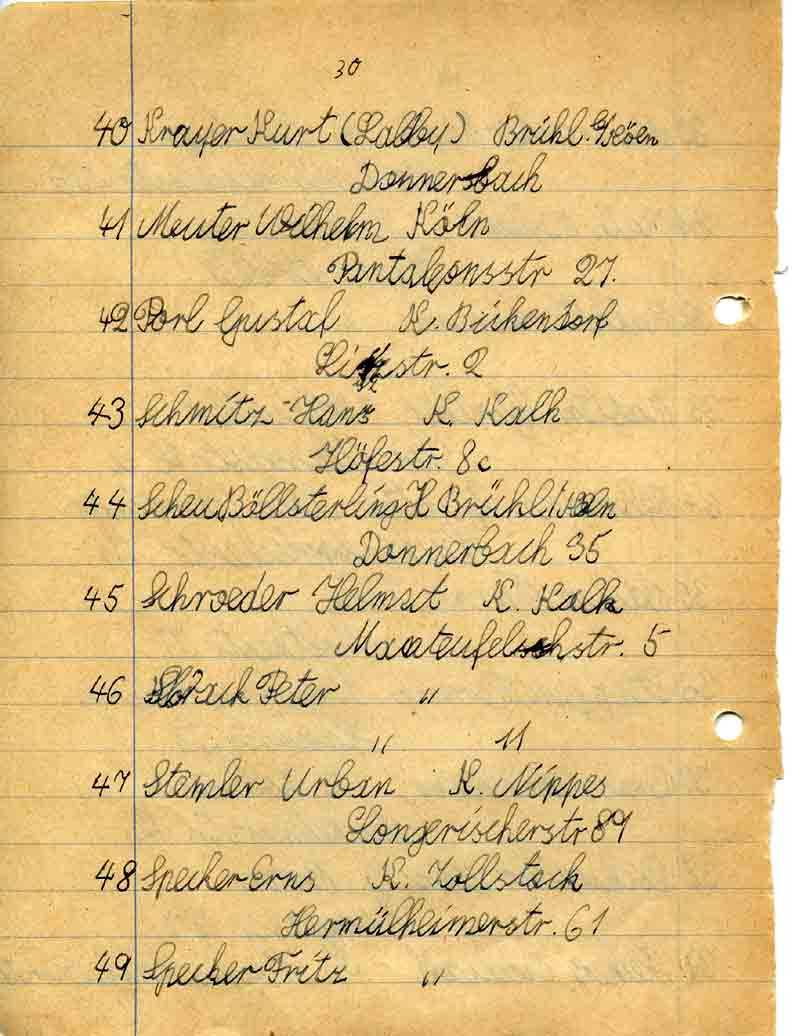 30
40 Krayer Kurt (Labby) Brühl. b/Köln
Donnersbach
41 Meuter Wilhelm Köln
Pantaleonsstr 27.
42 Porl Gustaf K. Bickendorf
str. 2
43 Schmitz Hans K. Kalk
Höfestr. 8c
44 Scheu Böllsterling K Brühl / Köln
Donnerbach 35
45 Schroeder Helmut K. Kalk
str. 5
46 Peter "
" 11
47 Stemler Urban K. Nippes
Longericherstr 89
48 Specker Erns K. Zollstock
Hermülheimerstr. 61
49 Specker Fritz "